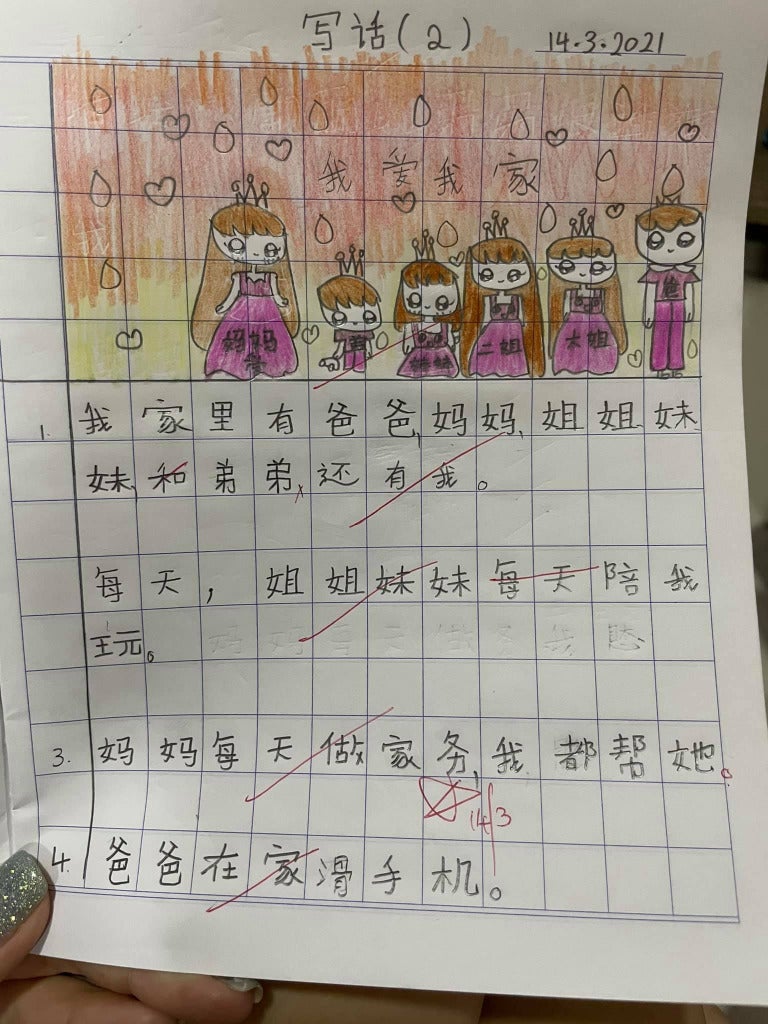 写话(2)
14.3.2021
我爱我家
妈妈
二姐
大姐
爸
1. 我家里有爸爸,妈妈,姐姐、妹
妹、和弟弟,还有我。
每天,姐姐妹妹每天陪我
玩。妈妈每天做
3. 妈妈每天做家务,我都帮她。
14/3
4. 爸爸在家滑手机。